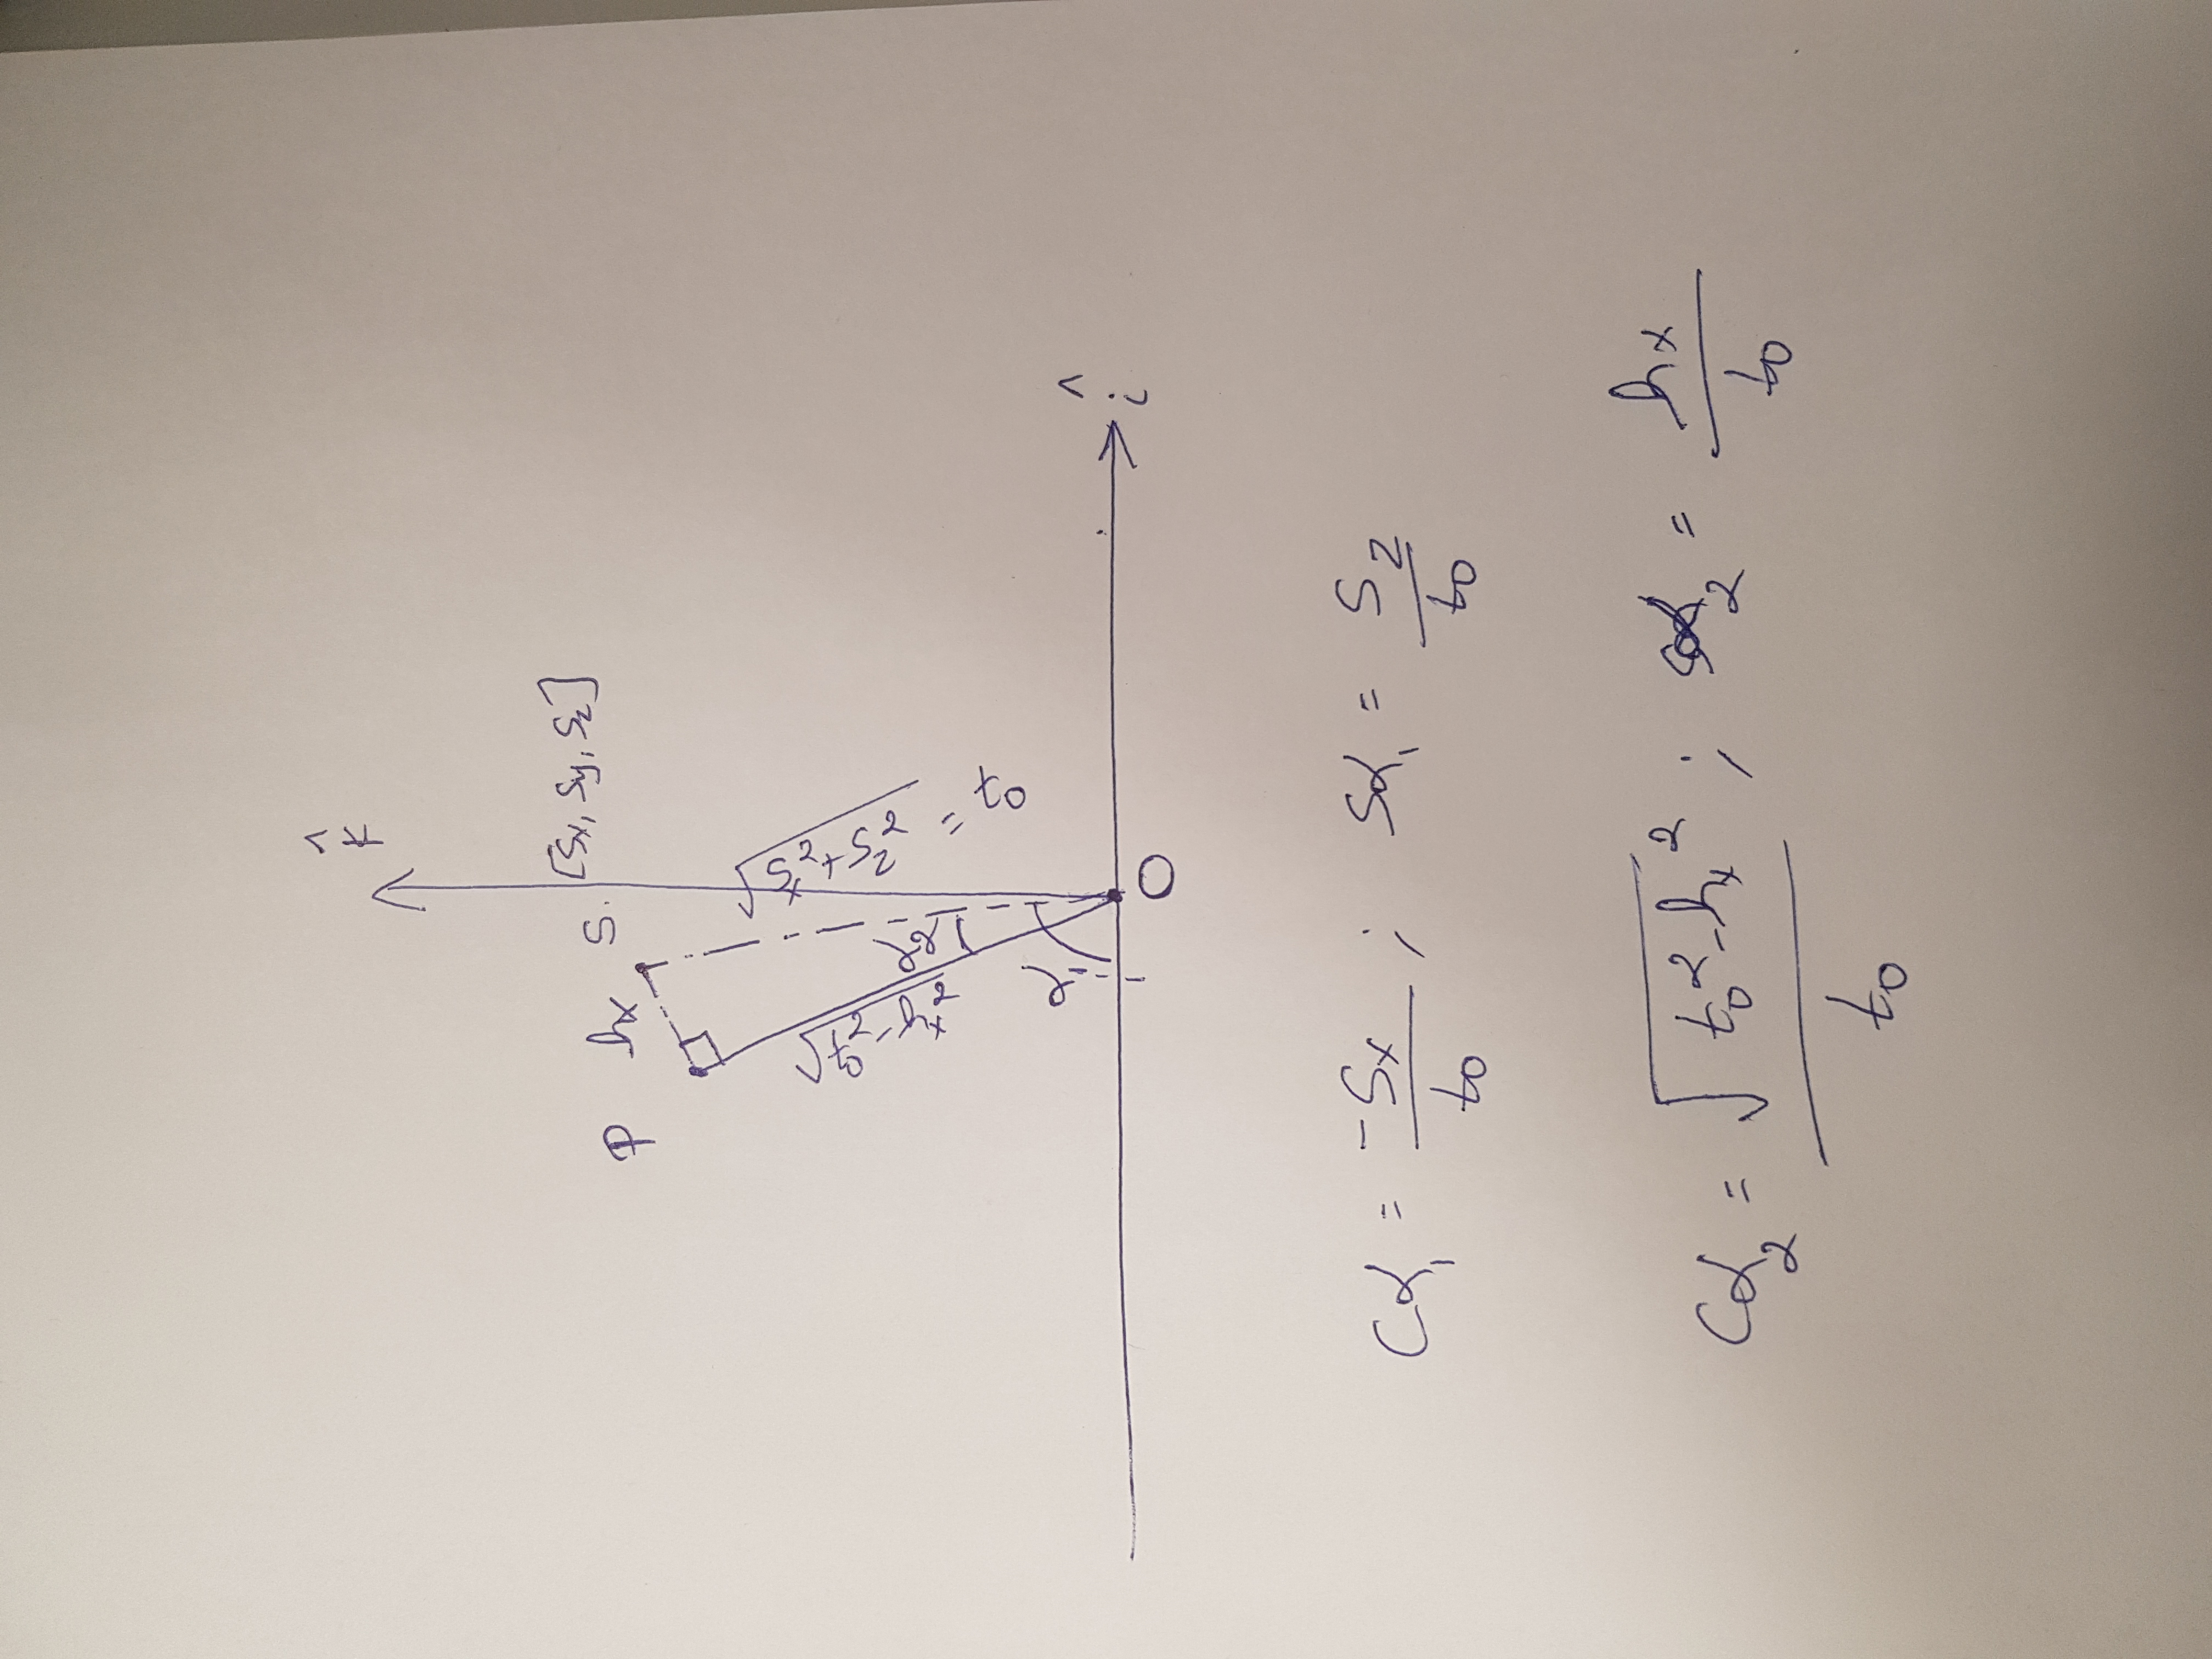 k̂
S. [Sx, Sy, Sz]
P hx
√(Sx² + Sz²) = t₀
√(t₀² - hx²)
α₂
α₁
î
O
Cα₁ = -Sx / t₀ ; Sα₁ = Sz / t₀
Cα₂ = √(t₀² - hx²) / t₀ ; Sα₂ = hx / t₀